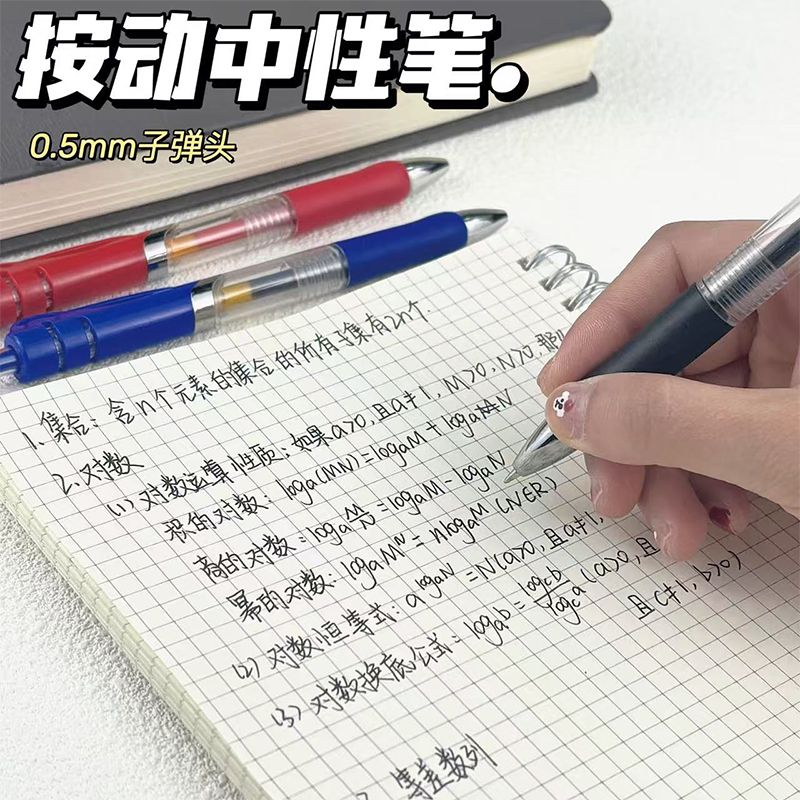 按动中性笔.
0.5mm子弹头
1.集合：含n个元素的集合的所有子集有2n个.
2.对数
(1)对数运算性质：如果a>0,且a≠1,M>0,N>0,那
积的对数：loga(MN)=logaM+logaN
商的对数：loga M/N=logaM-logaN
幂的对数：logaMⁿ=nlogaM(NER)
(2)对数恒等式：a^logaN=N(a>0,且a≠1,
(3)对数换底公式：logab=logcb/logca(a>0,且
且c≠1,b>0)
等差数列